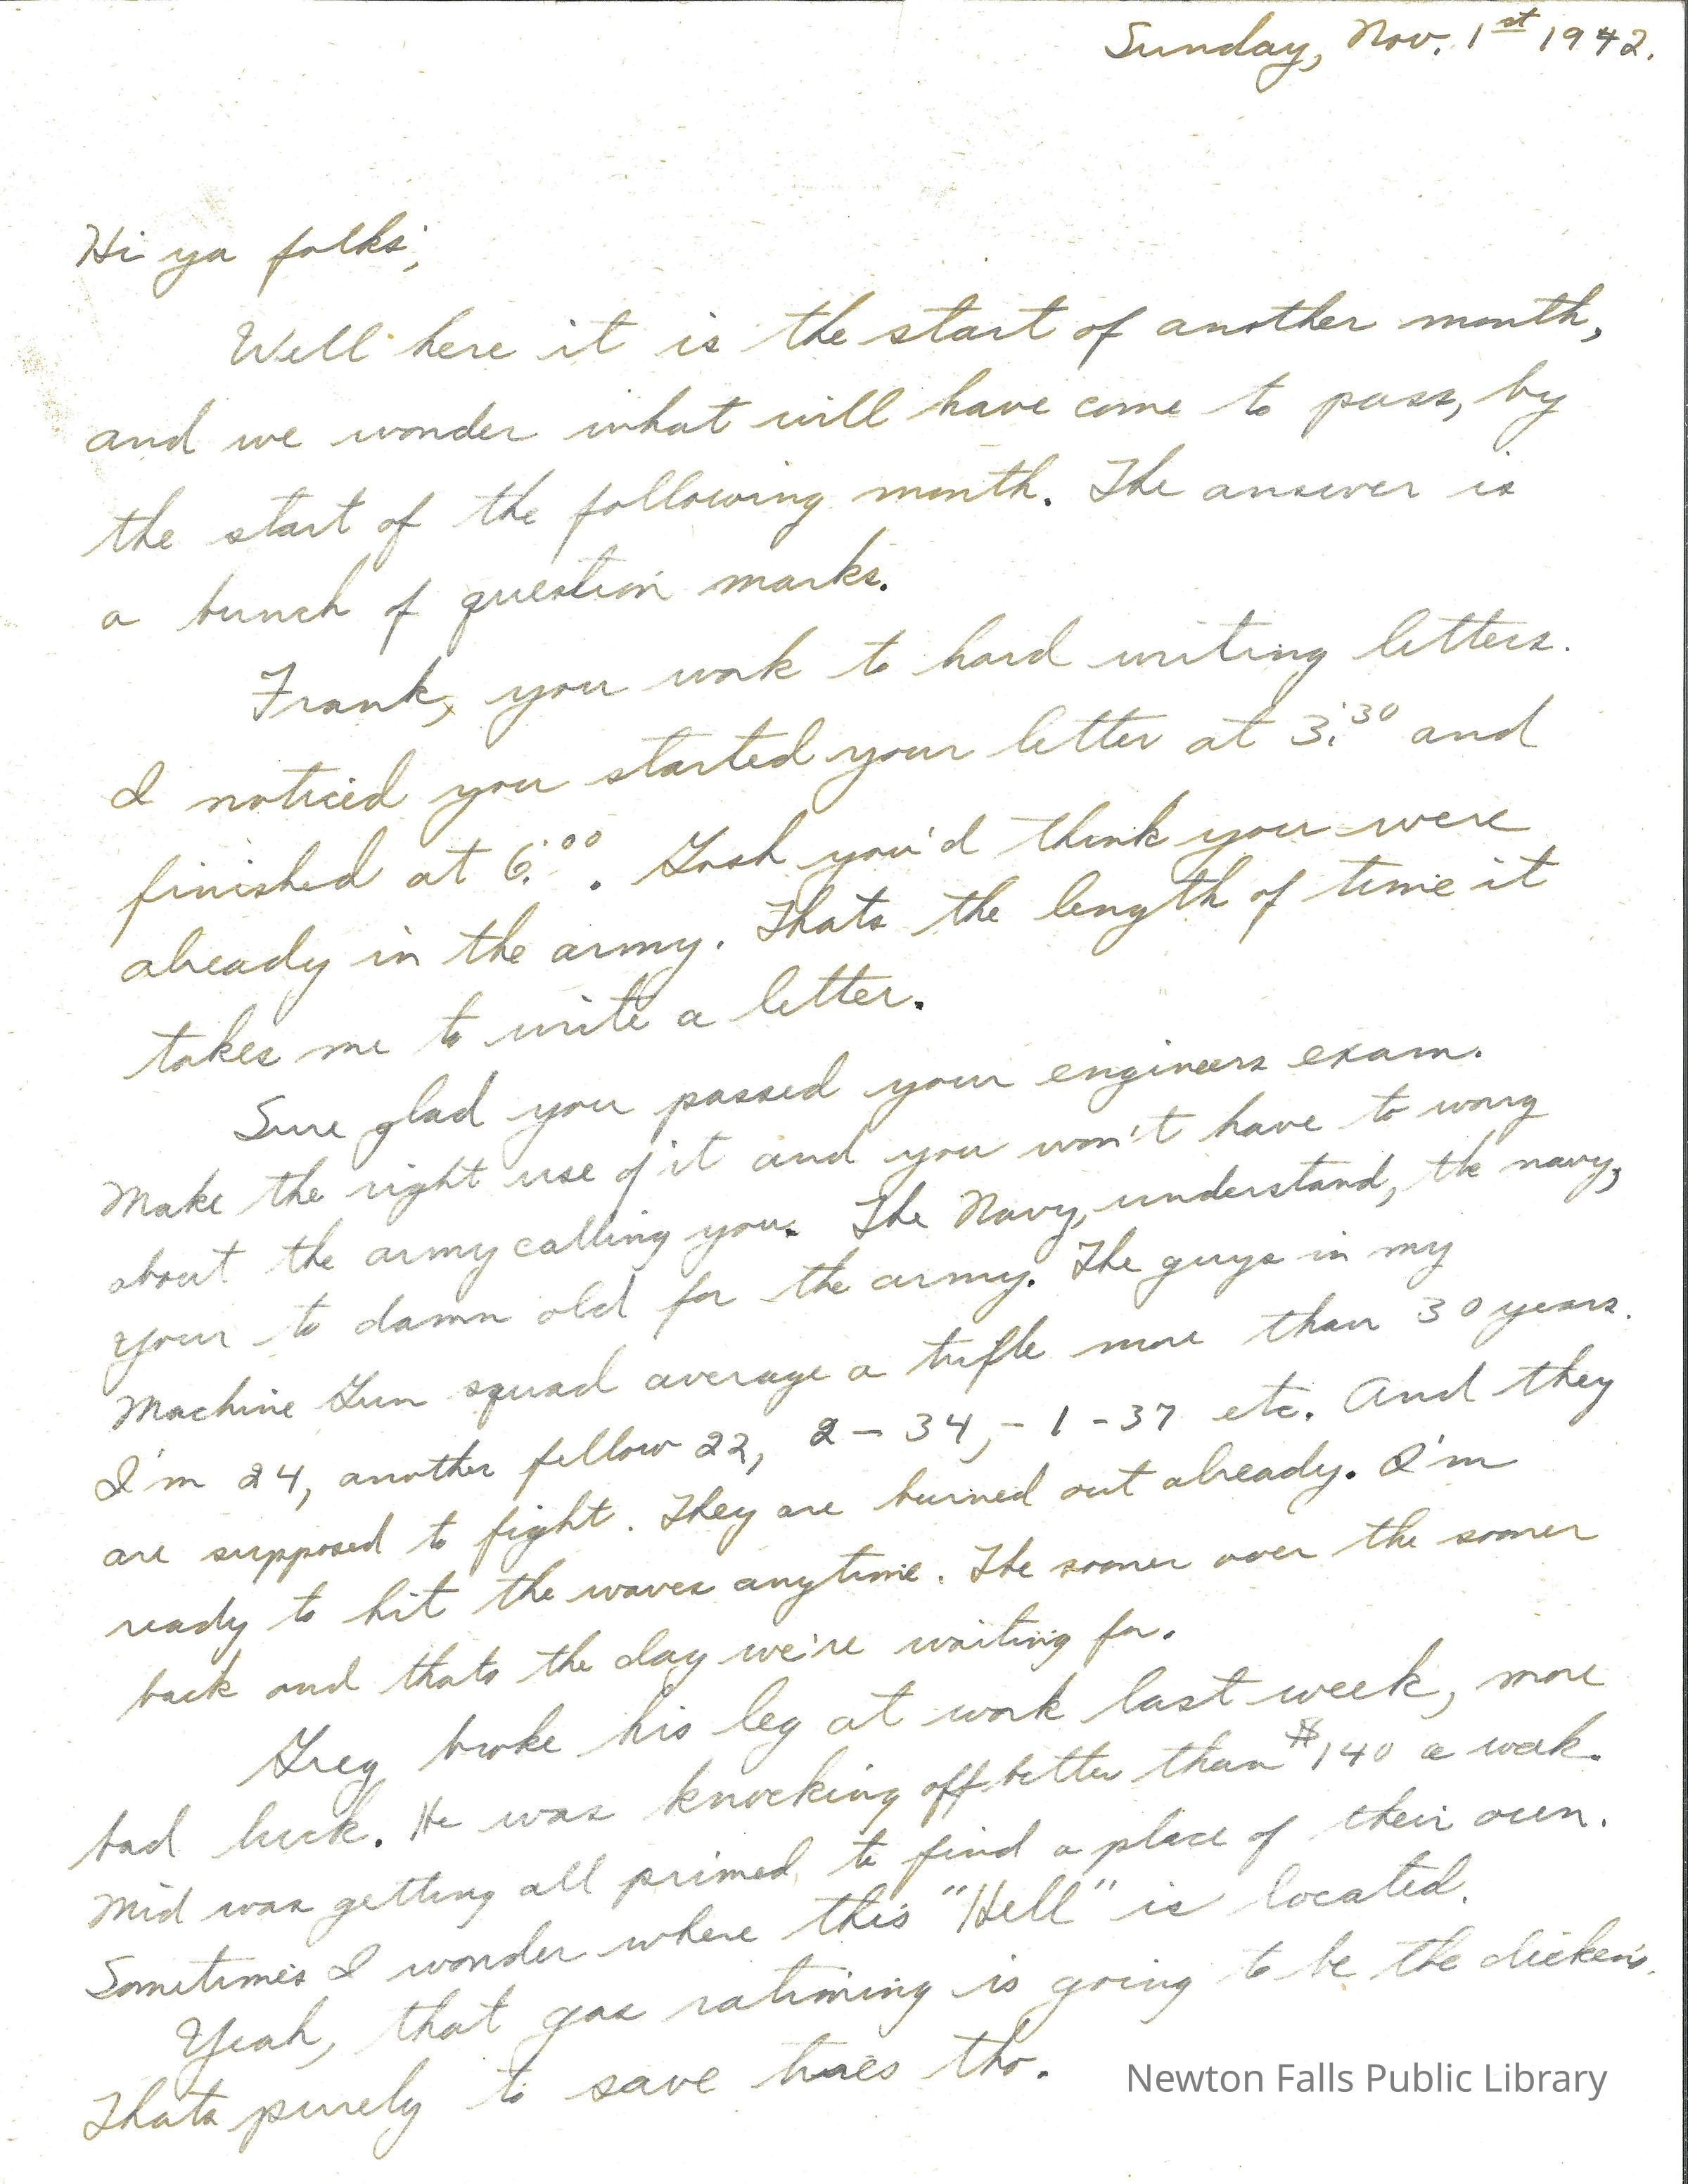 Sunday, Nov. 1st 1942.
Hi ya folks;
Well here it is the start of another month,
and we wonder what will have come to pass, by
the start of the following month. The answer is
a bunch of question marks.
Frank, you work to hard writing letters.
I noticed you started your letter at 3:30 and
finished at 6:00. Gosh you'd think you were
already in the army. Thats the length of time it
takes me to write a letter.
Sure glad you passed your engineers exam.
Make the right use of it and you won't have to worry
about the army calling you. The Navy, understand, the navy,
your to damn old for the army. The guys in my
Machine Gun squad average a trifle more than 30 years.
I'm 24, another fellow 22, 2 - 34, - 1 - 37 etc. And they
are supposed to fight. They are burned out already. I'm
ready to hit the waves anytime. The sooner over the sooner
back and thats the day we're waiting for.
Greg broke his leg at work last week, more
bad luck. He was knocking off better than $140 a week.
Mid was getting all primed to find a place of their own.
Sometimes I wonder where this "Hell" is located.
Yeah, that gas rationing is going to be the dickens.
Thats purely to save tires tho.
Newton Falls Public Library